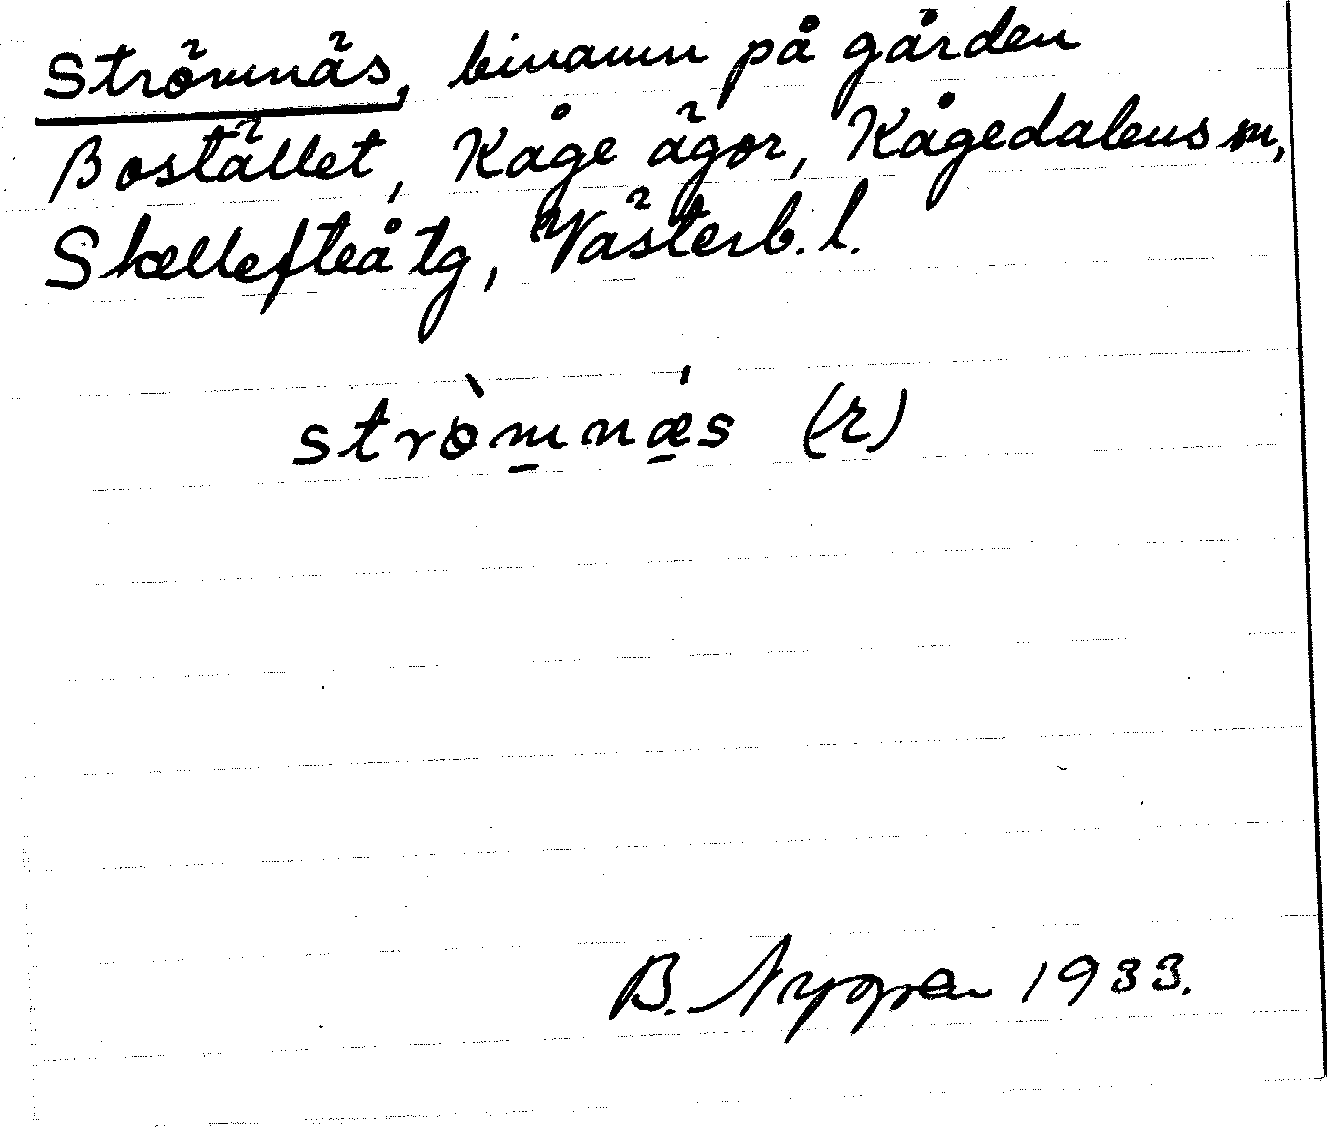 Strömnäs, binamn på gården
Bostället, Kåge ägor, Kågedalens sn,
Skellefteå tg, Västerb. l.
strò̱mnǽ̱s (r)
B. Nygren 1933.